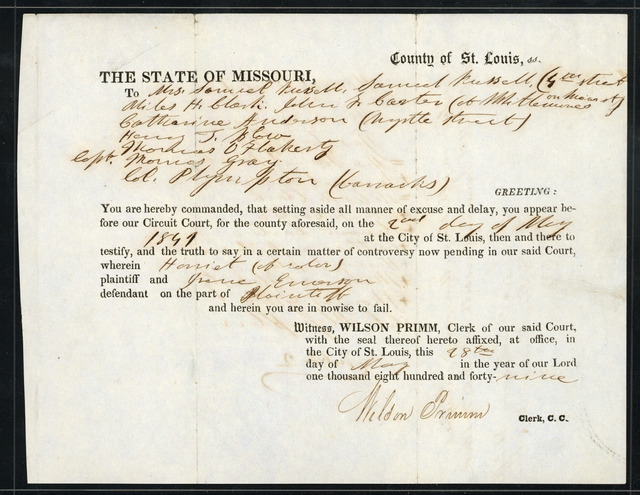 County of St. Louis, ss.
THE STATE OF MISSOURI,
To Mrs. Samuel Russell, Samuel Russell, (4th street
Miles H. Clark. John F Carter (at Mr
Catharine Anderson (Myrtle Street)
Henry T. Blow
Thomas O'Flaherty
Capt. Thomas Gray
Col. Plympton (barracks)
GREETING:
You are hereby commanded, that setting aside all manner of excuse and delay, you appear be-
fore our Circuit Court, for the county aforesaid, on the 2nd day of May
1849 at the City of St. Louis, then and there to
testify, and the truth to say in a certain matter of controversy now pending in our said Court,
wherein Harriet (of color)
plaintiff and Irene Emerson
defendant on the part of Plaintiff
and herein you are in nowise to fail.
Witness, WILSON PRIMM, Clerk of our said Court,
with the seal thereof hereto affixed, at office, in
the City of St. Louis, this 28th
day of May in the year of our Lord
one thousand eight hundred and forty-nine
Wilson Primm Clerk, C. C.